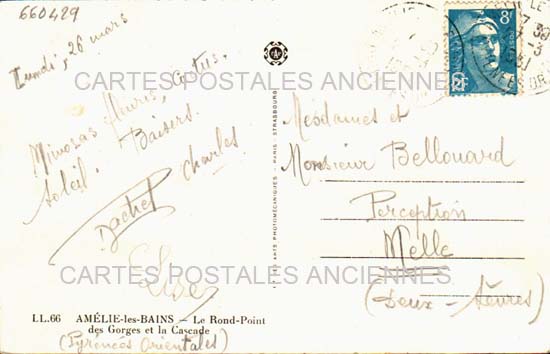 660429
Lundi, 26 mars
Mimosas fleuris, Cactus,
Soleil. Baisers.
Charles
Rachel
Lise
LL.66 AMÉLIE-les-BAINS — Le Rond-Point
des Gorges et la Cascade
(Pyrénées Orientales)
LES ARTS PHOTOMÉCANIQUES - PARIS - STRASBOURG
8F
POSTES
Mesdames et
Monsieur Bellouard
Perception
Melle
(Deux-Sèvres)
CARTES POSTALES ANCIENNES
CARTES POSTALES ANCIENNES